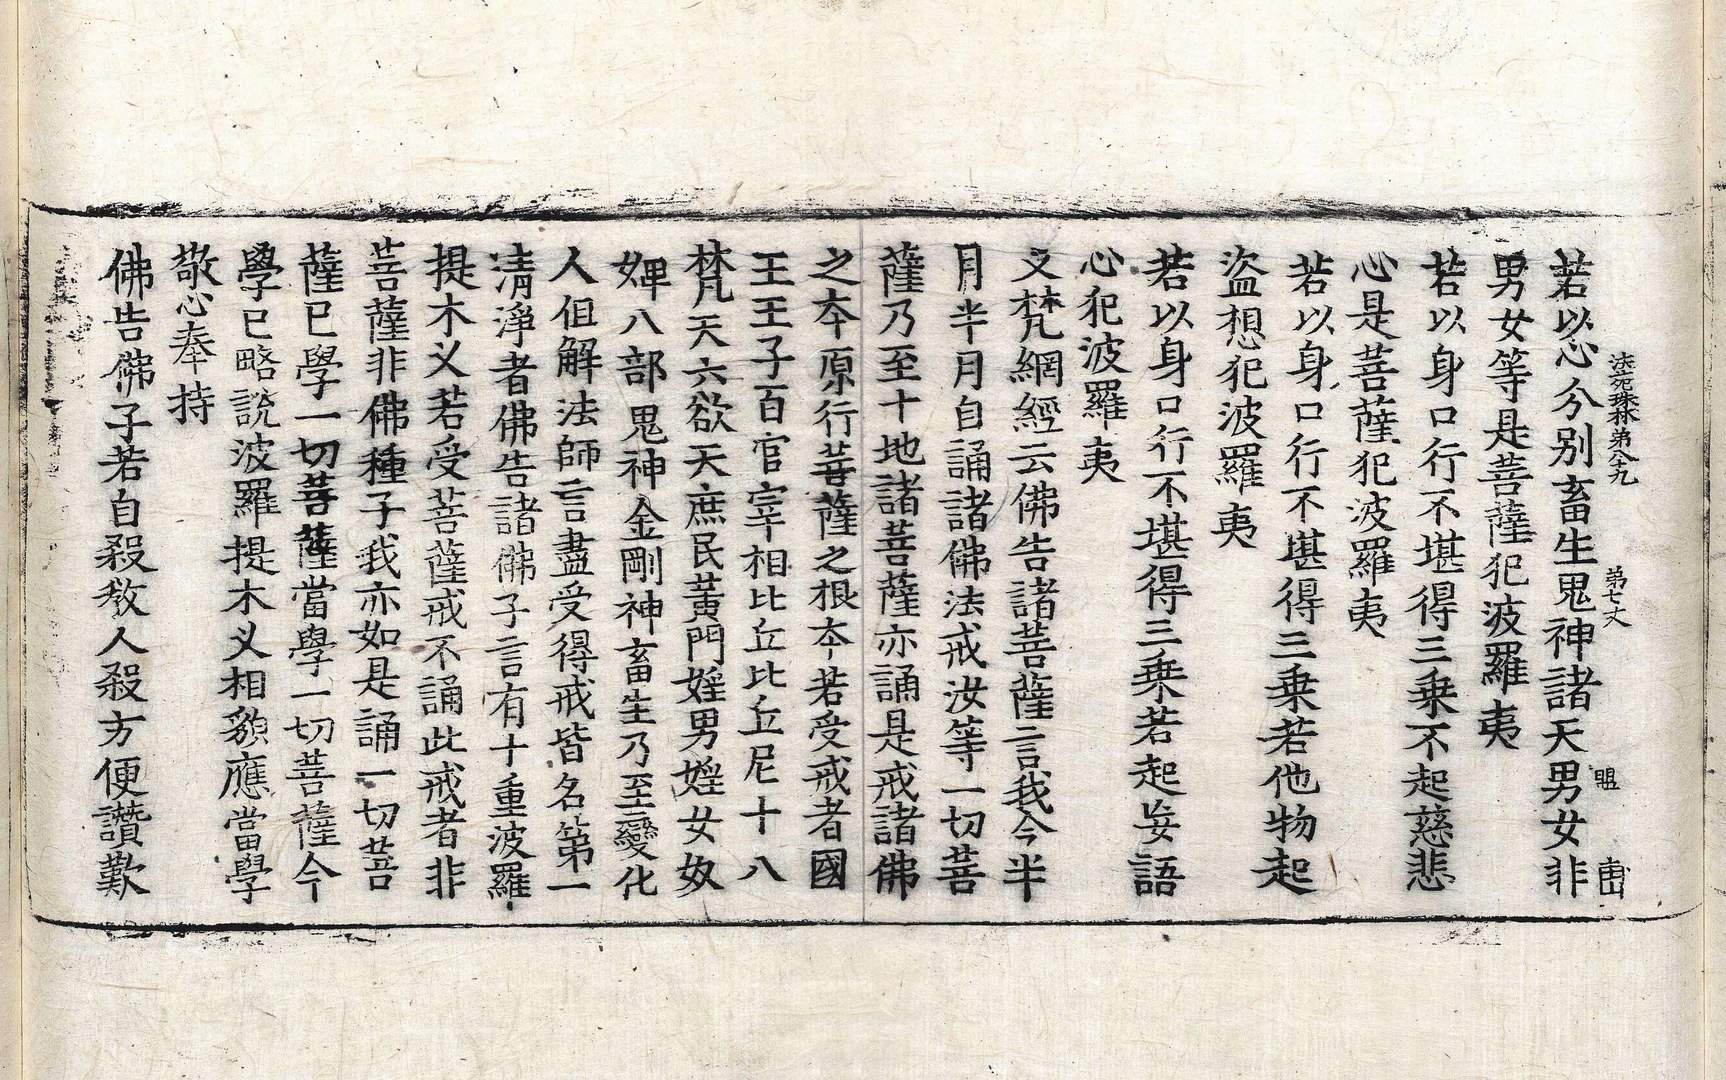 法苑珠林第八十九　第七丈
若以心分別畜生鬼神諸天男女非
男女等是菩薩犯波羅夷
若以身口行不堪得三乗不起慈悲
心是菩薩犯波羅夷
若以身口行不堪得三乗若他物起
盜想犯波羅夷
若以身口行不堪得三乗若起妄語
心犯波羅夷
又梵網經云佛告諸菩薩言我今半
月半月自誦諸佛法戒汝等一切菩
薩乃至十地諸菩薩亦誦是戒諸佛
之夲原行菩薩之根夲若受戒者國
王王子百官宰相比丘比丘尼十八
梵天六欲天庶民黃門婬男婬女奴
婢八部鬼神金剛神畜生乃至變化
人但解法師言盡受得戒皆名第一
清淨者佛告諸佛子言有十重波羅
提木义若受菩薩戒不誦此戒者非
菩薩非佛種子我亦如是誦一切菩
薩已學一切菩薩當學一切菩薩今
學已略說波羅提木义相貌應當學
敬心奉持
佛告佛子若自殺教人殺方便讚歎